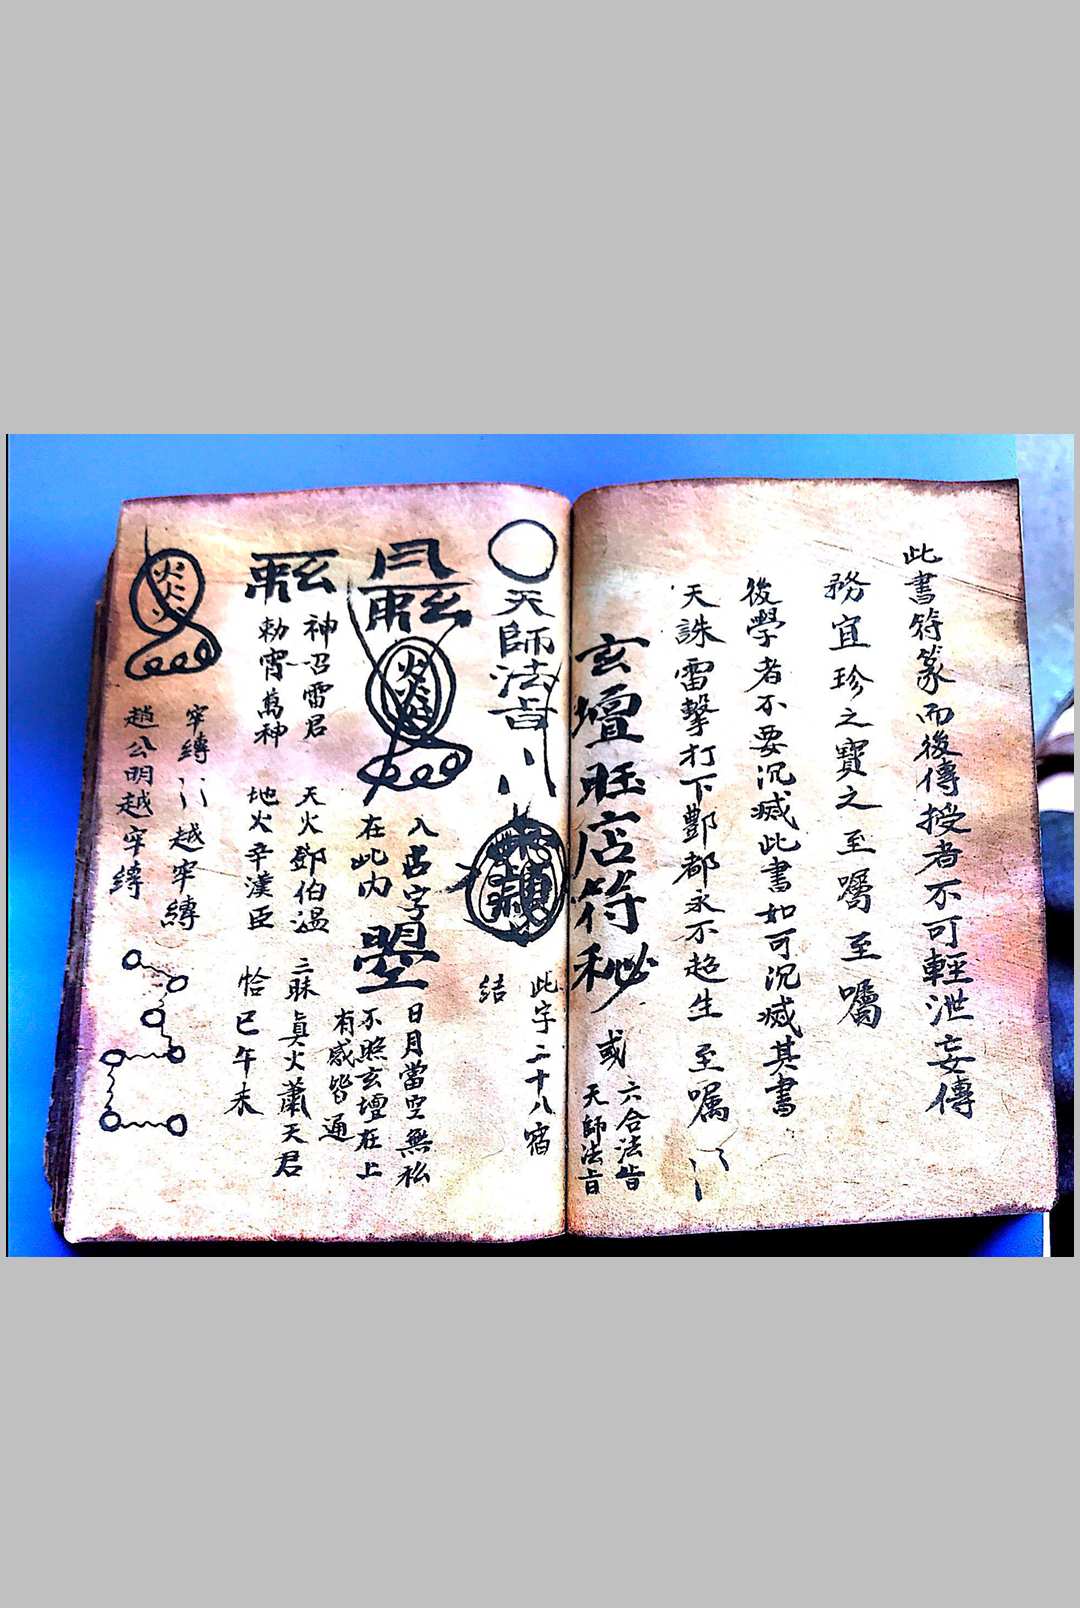 此書符篆而後傳授者不可輕泄妄傳
務宜珍之寶之至囑至囑
後學者不要沉滅此書如可沉滅其書
天誅雷擊打下酆都永不超生至囑
玄壇旺店符秘
或
六合法旨
天師法旨
天師法旨
此字二十八宿
結
八占字
在此內
日月當空無私
不照玄壇在上
有感皆通
神召雷君
勅霄萬神
天火鄧伯溫
地火辛漢臣
三昧真火蕭天君
恰巳午未
牢縛
越牢縛
趙公明越牢縛